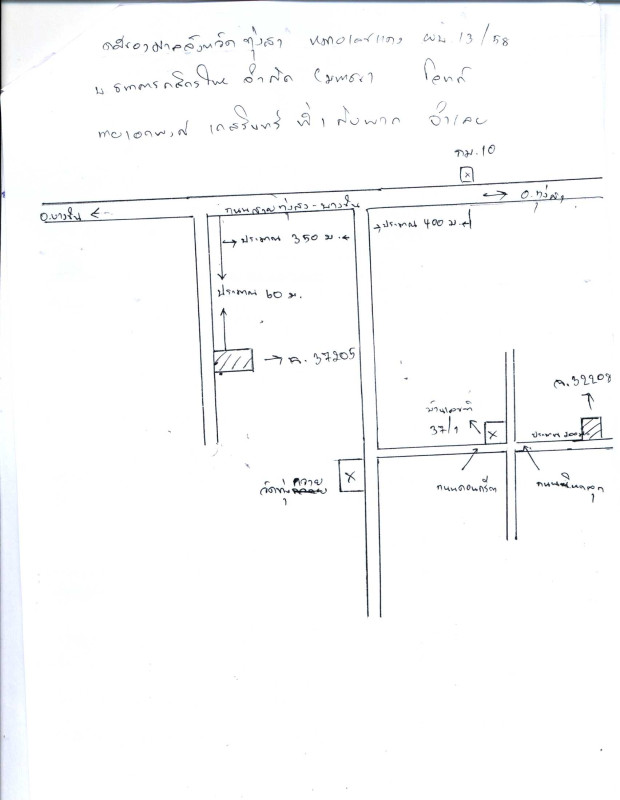 ศาลจังหวัดทุ่งสง หมายเลขแดง ผบ 13/58
ธนาคารกสิกรไทย จำกัด (มหาชน) โจทก์
ที่ 1 กับพวก จำเลย
กม.10
x
อ.บางขัน
ถนนสายทุ่งสง-บางขัน
อ.ทุ่งสง
ประมาณ 350 ม.
ประมาณ 400 ม.
ประมาณ 60 ม.
ฉ.37205
ฉ.32208
บ้านเลขที่
37/1
x
ประมาณ 200 ม.
x
วัดทุ่งควาย
ถนน
ถนน